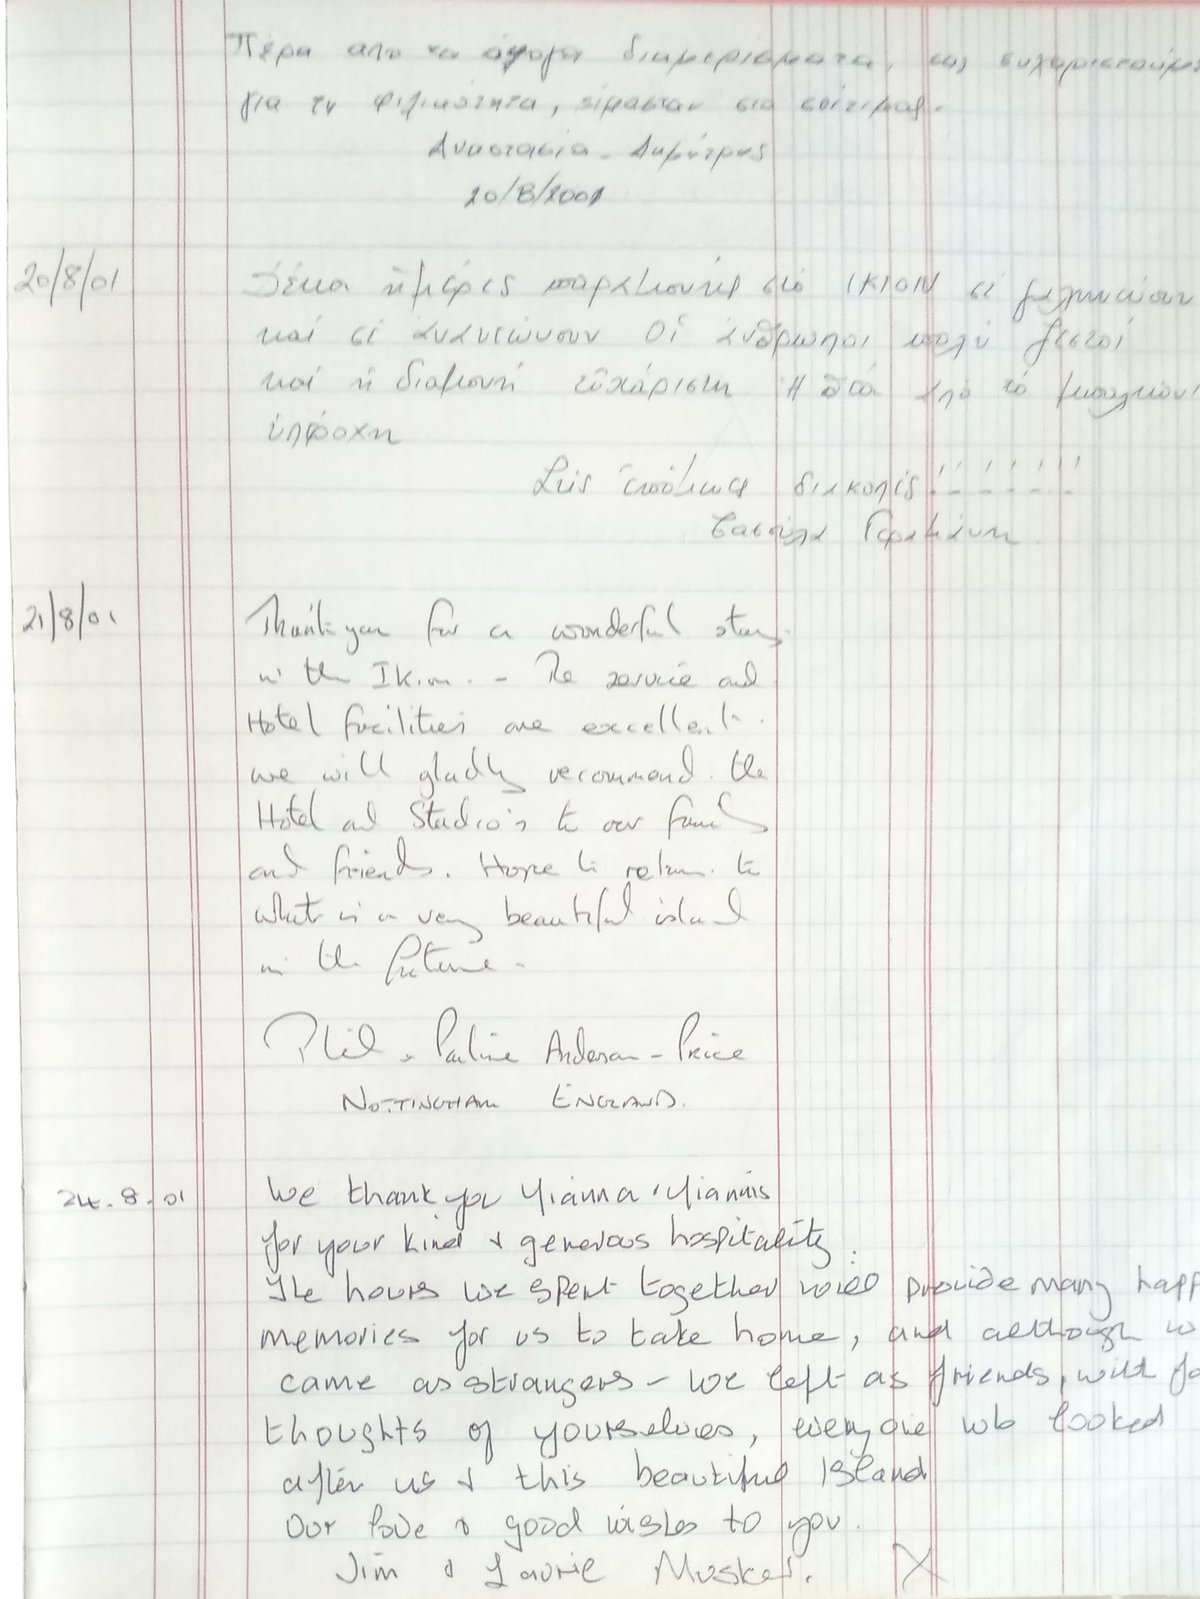 Πέρα απο τα άψογα διαμερίσματα, σας ευχαριστούμε
για τη φιλικότητα, είμασταν στο σπίτι μας.
Αναστασία - Δημήτρης
20/8/2001
20/8/01
Δέκα ἡμέρες παραμονῆς στό ΙΚΙΟΝ σέ γαληνεύουν
καί σέ ἀνανεώνουν Οἱ ἄνθρωποι πολύ ζεστοί
καί ἡ διαμονή εὐχάριστη Ἡ θέα ἀπό τό μπαλκόνι
ὑπέροχη
Στίς ἑπόμενες διακοπές!!!!!!!
21/8/01
Thank you for a wonderful stay
in the Ikion. - The service and
Hotel facilities are excellent.
we will gladly recommend the
Hotel and Studio's to our family
and friends. Hope to return to
what is a very beautiful island
in the future.
Phil + Pauline Anderson-Price
NOTTINGHAM ENGLAND.
24.8.01
We thank you Yianna + Yiannis
for your kind & generous hospitality.
The hours we spent together will provide many happ
memories for us to take home, and although w
came as strangers - we left as friends, with fo
thoughts of yourselves, everyone who looked
after us & this beautiful Island
Our love & good wishes to you.
Jim & Laurie Musket. X